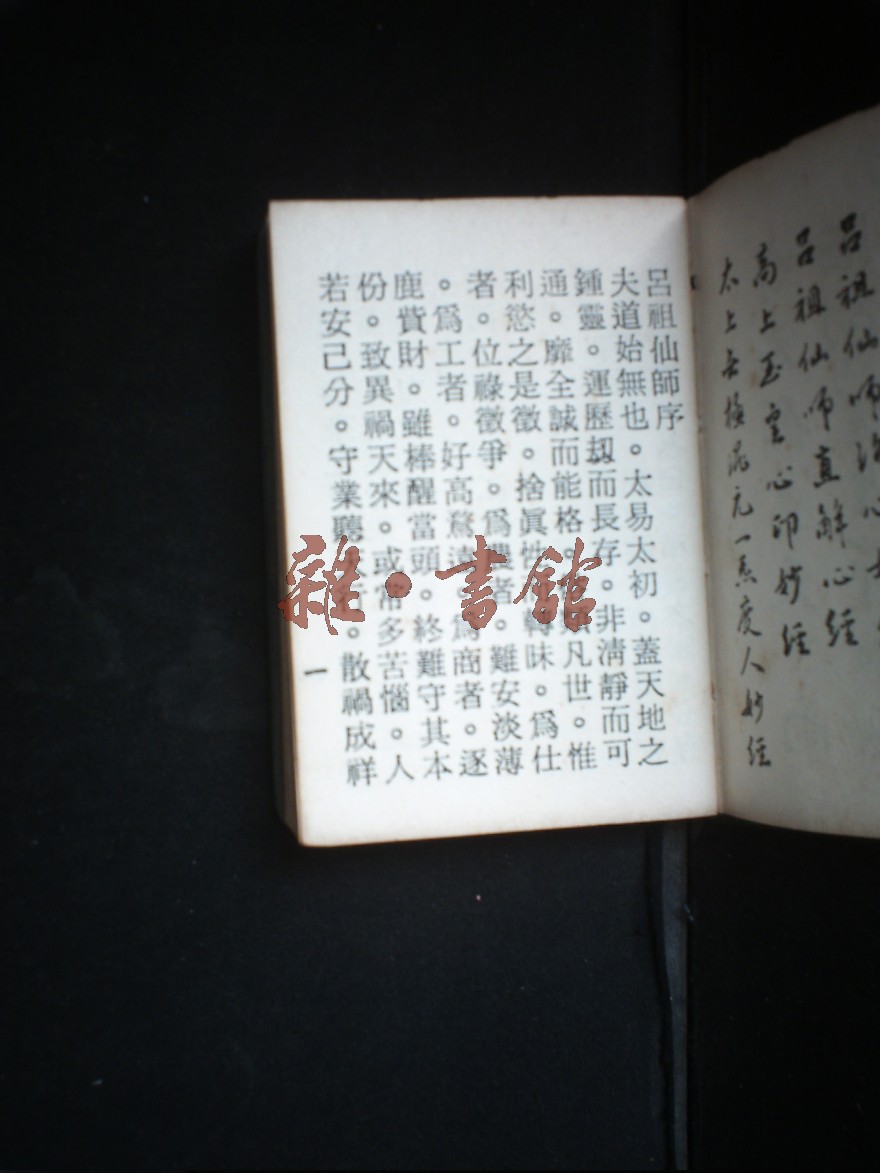 呂祖仙師
呂祖仙師直解心經
高上玉皇心印妙經
太上無極混元一炁度人妙經
呂祖仙師序
夫道始無也。太易太初。蓋天地之
鍾靈。運歷刼而長存。非淸靜而可
通。靡全誠而能格。凡世。惟
利慾之是徵。捨眞性轉昧。爲仕
者。位祿徵爭。爲農者。難安淡薄
。爲工者。好高騖遠。爲商者。逐
鹿貲財。雖棒醒當頭。終難守其本
份。致異禍天來。或常多苦惱。人
若安己分。守業聽。散禍成祥
一
雜·書館